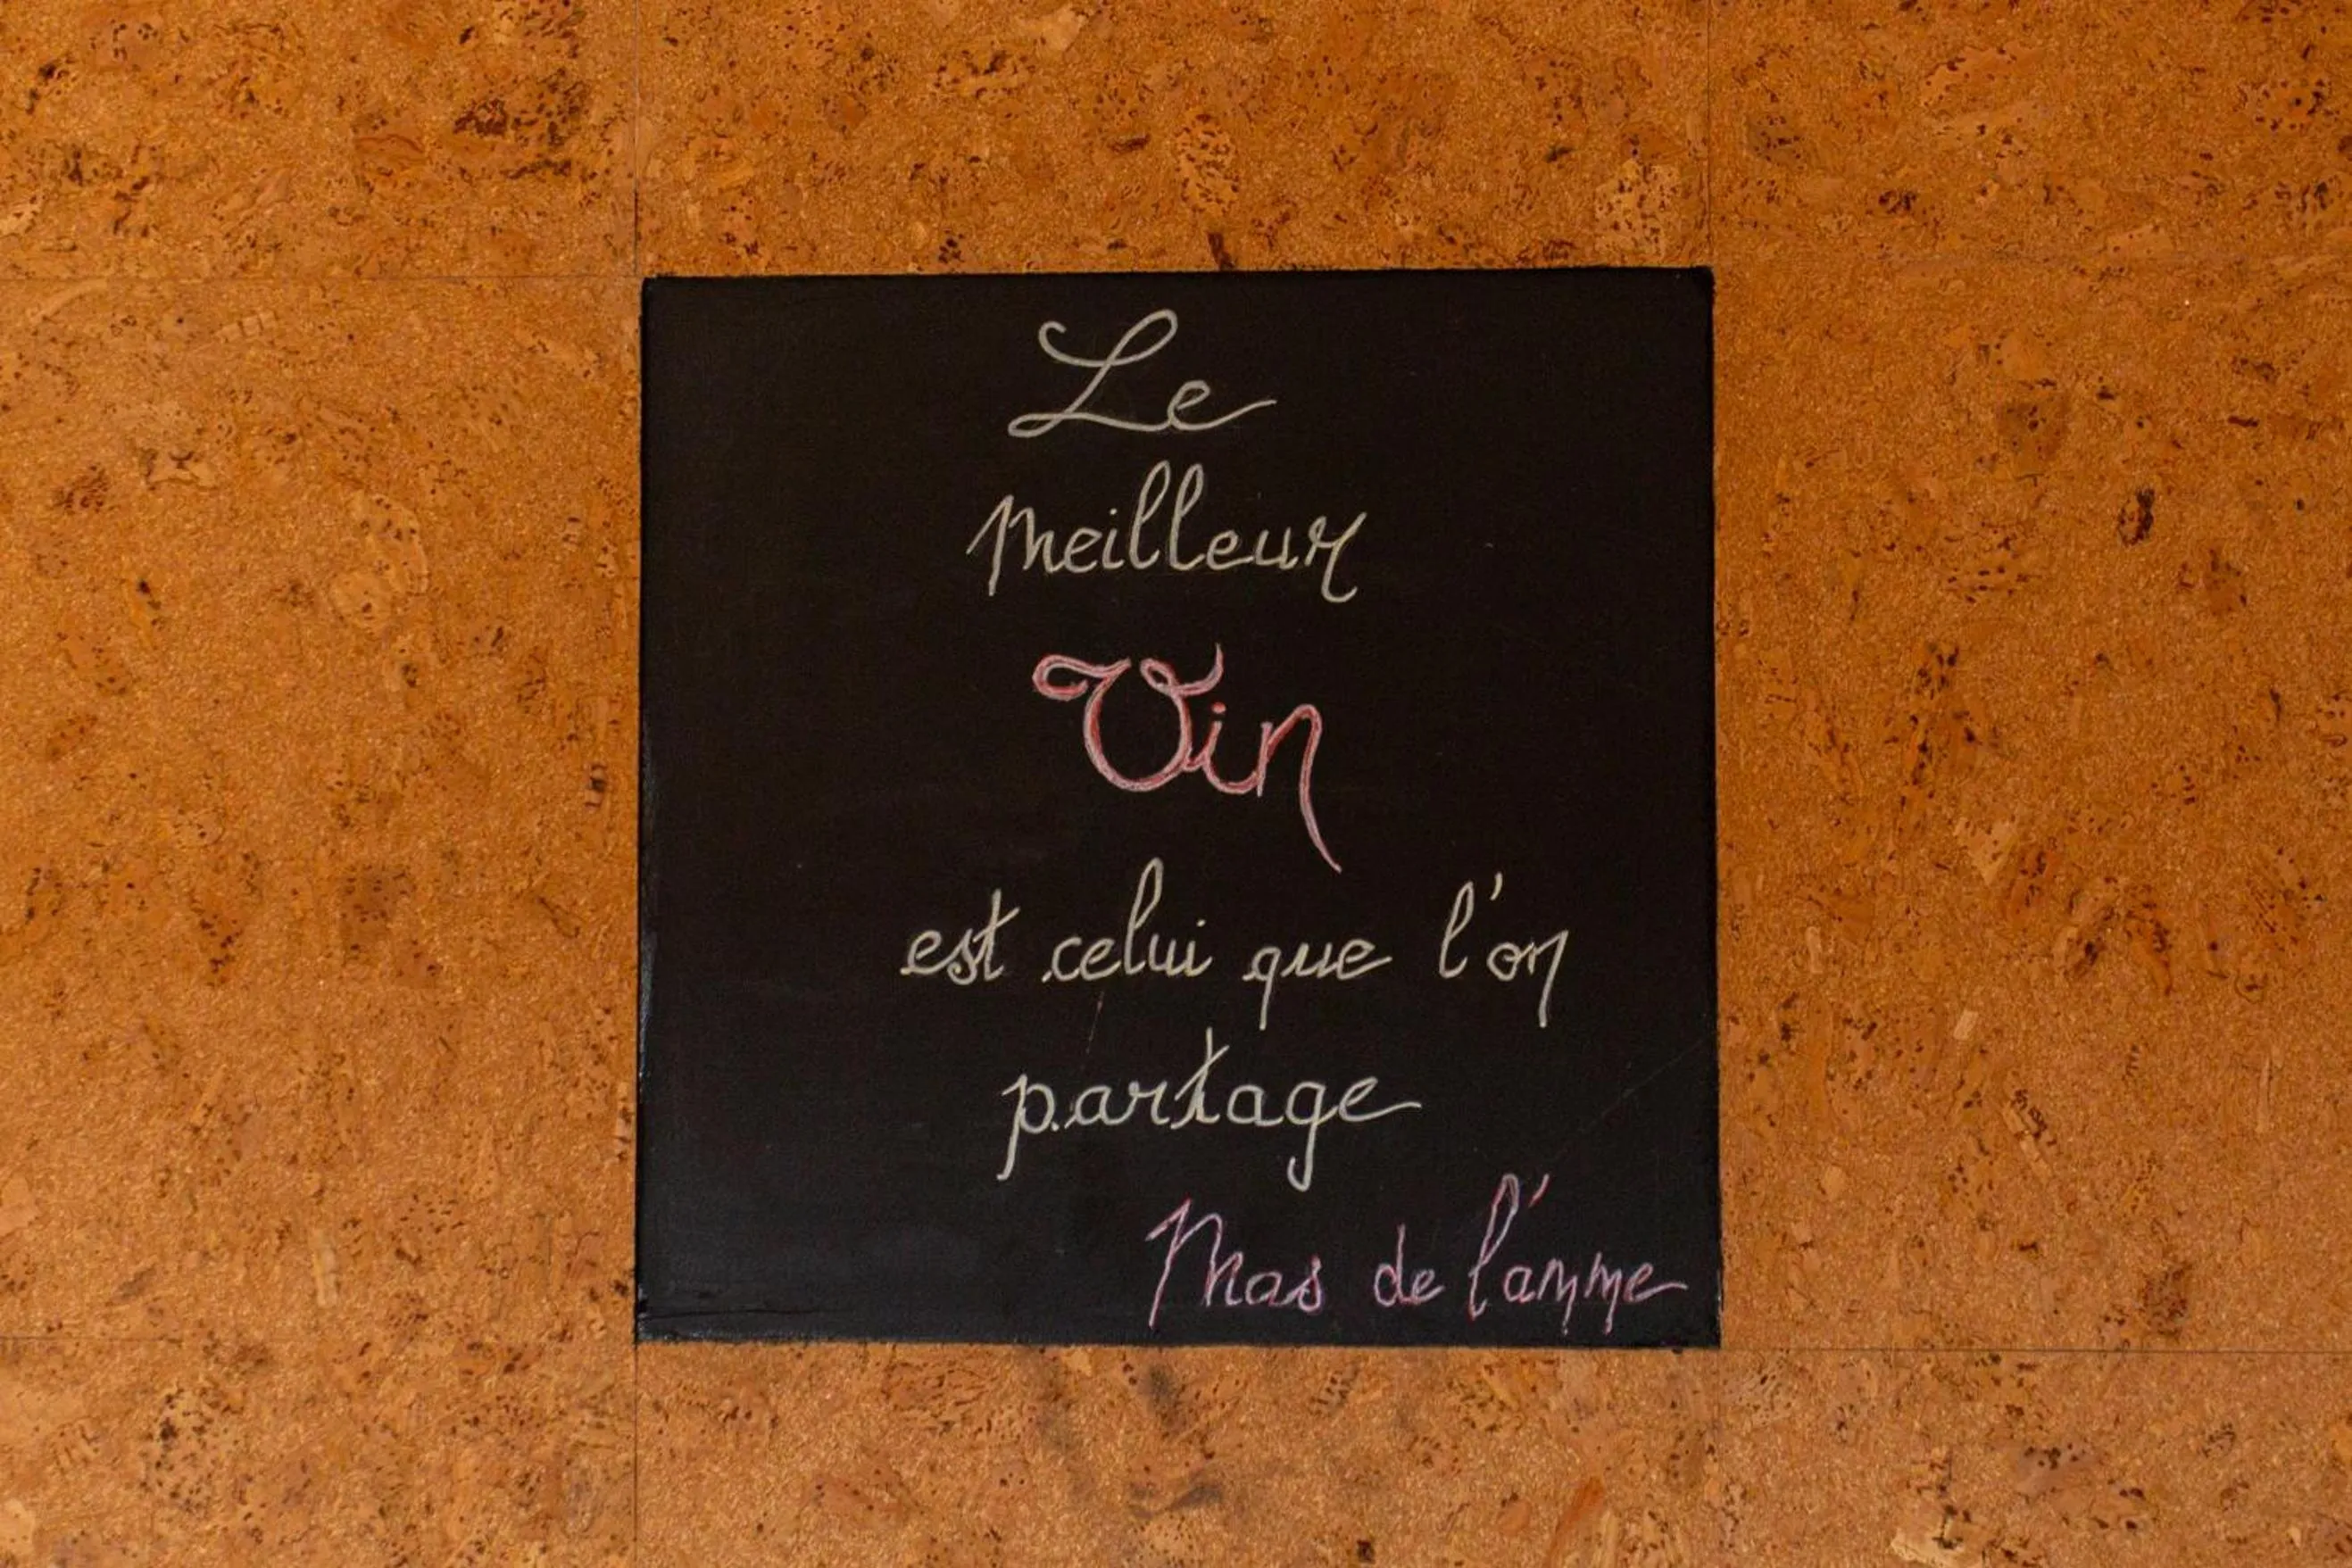 Le
meilleur
Vin
est celui que l'on
partage
Mas de l'amme